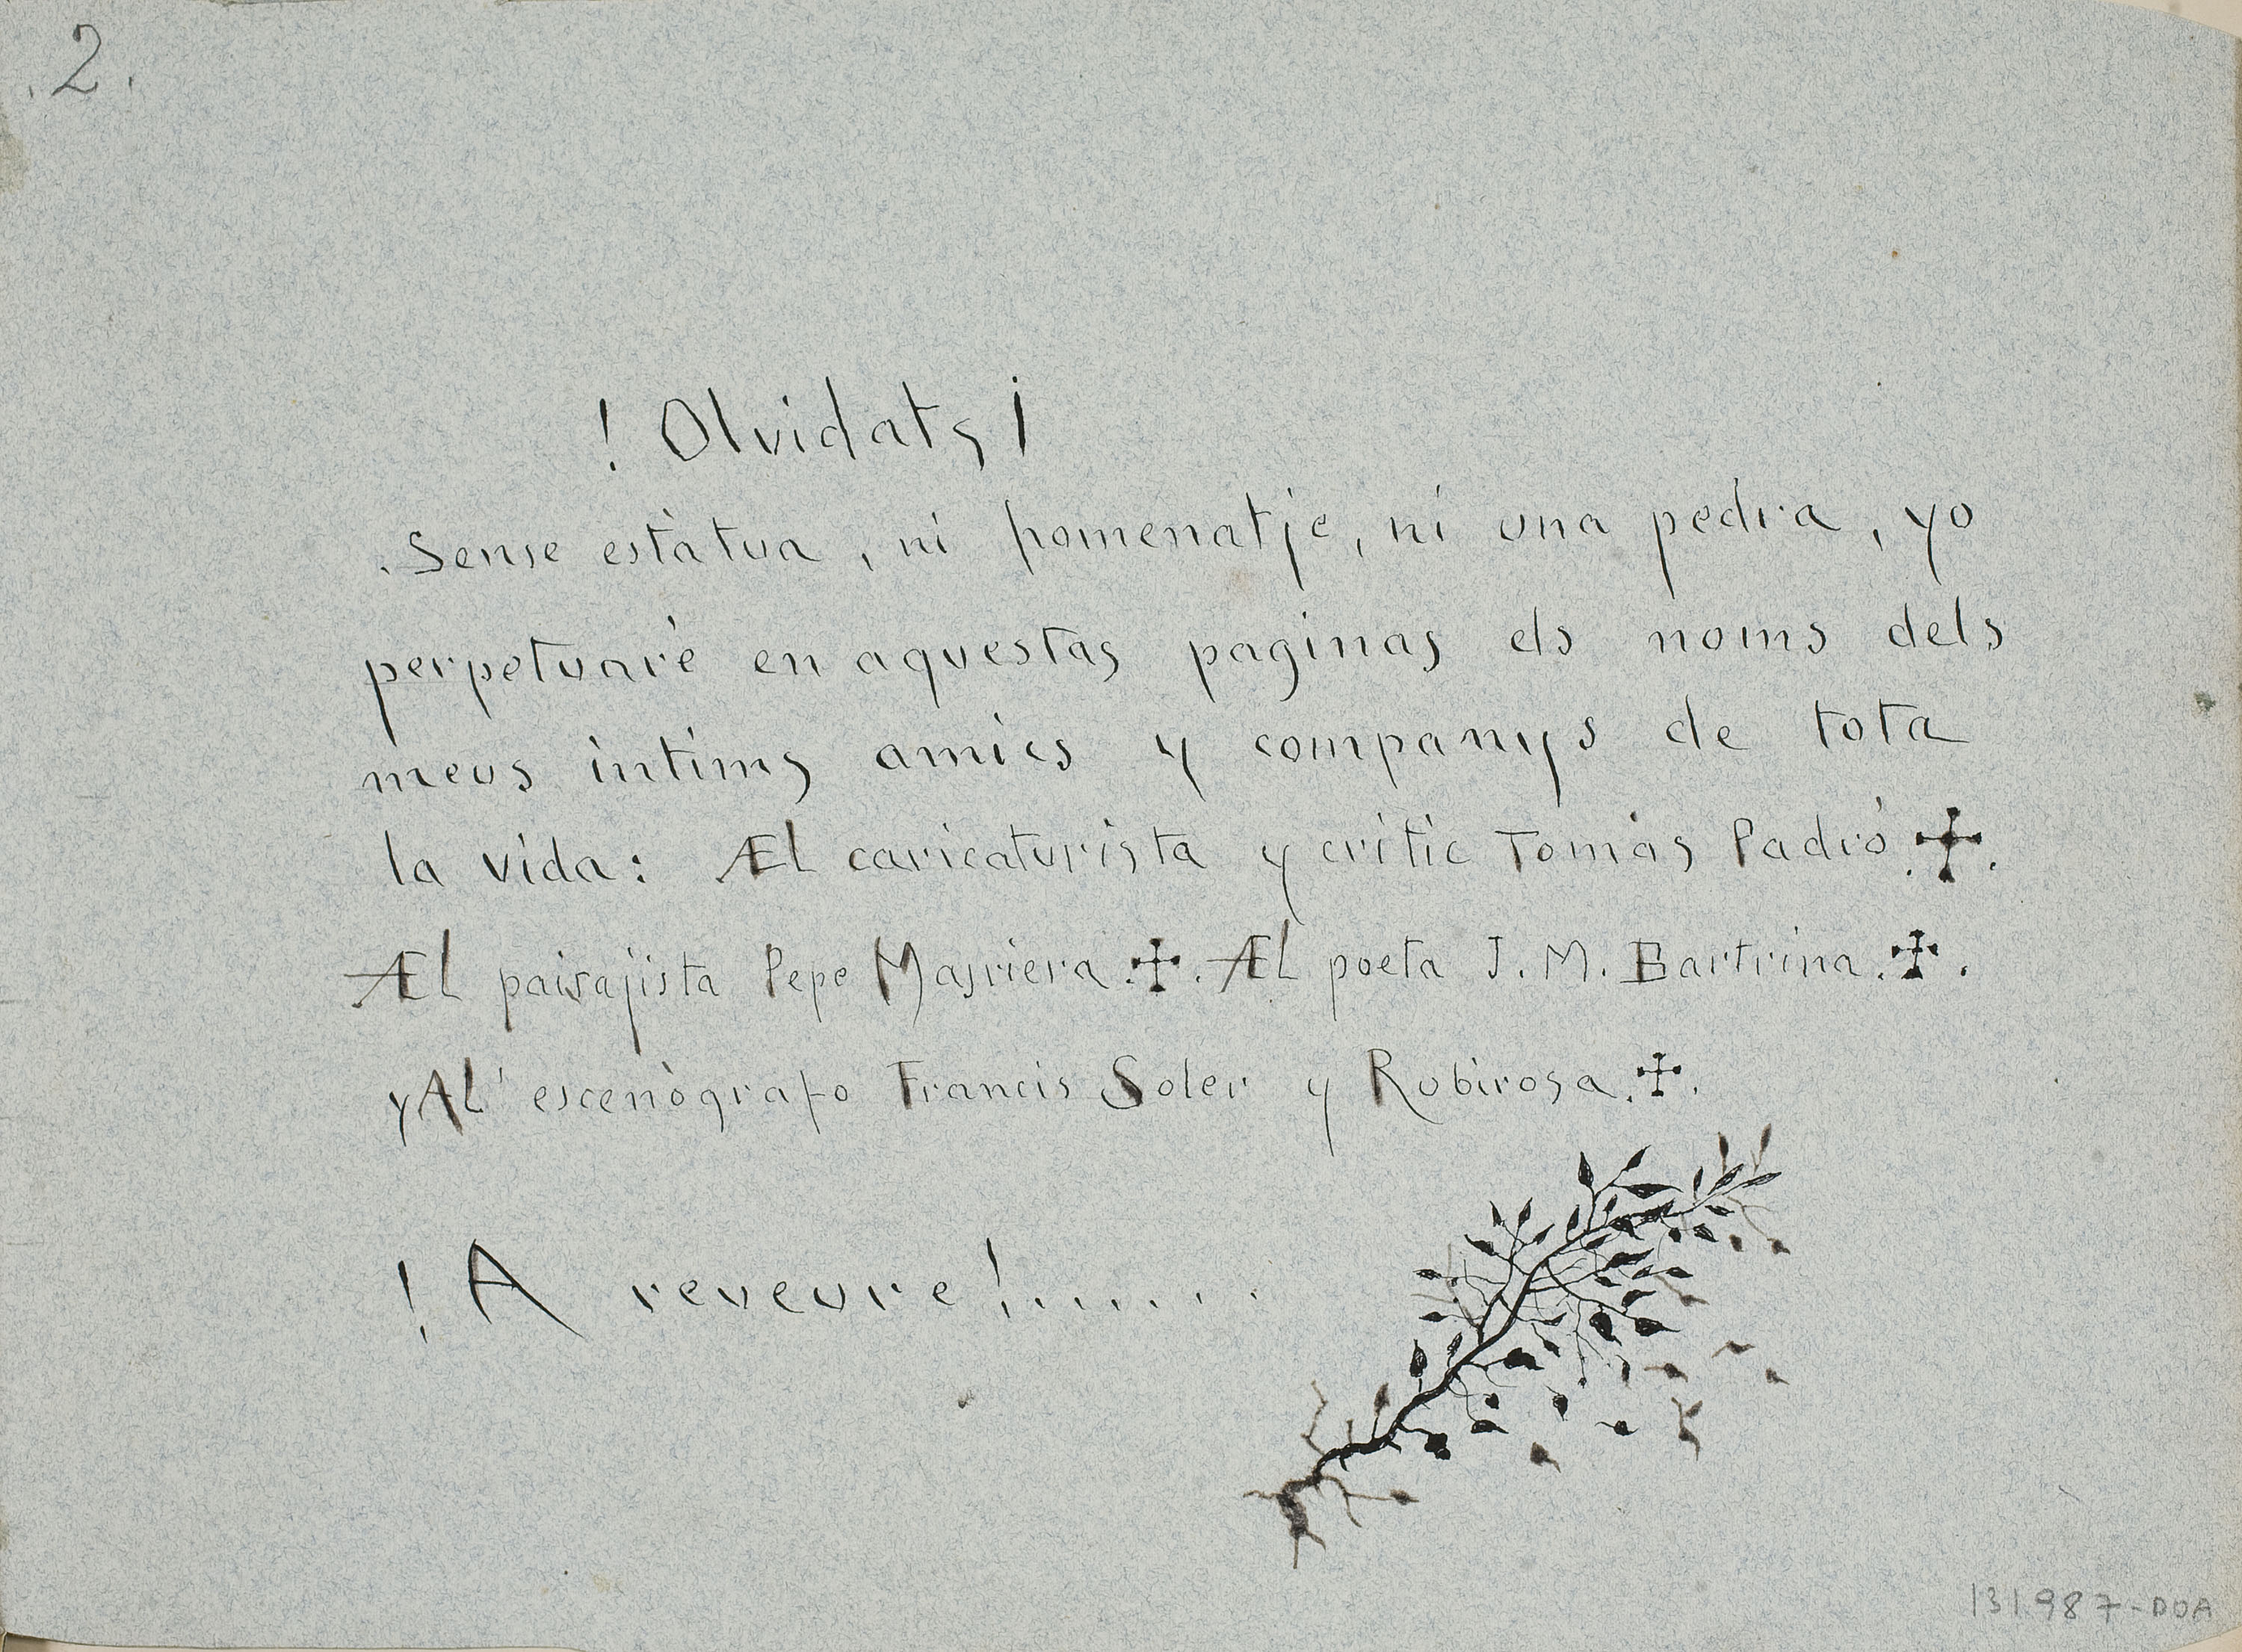 .2.
! Olvidats ¡
. Sense estàtua, ni homenatje, ni una pedra, yo
perpetuaré en aquestas paginas els noms dels
meus intims amics y companys de tota
la vida: Æl caricaturista y critic Tomás Padró. ✠.
Æl paisajista Pepe Masriera. ✠. Æl poeta J. M. Bartrina. ✠.
y AL' escenògrafo Francis Soler y Rubirosa. ✠.
! A reveure!.......
131987-DOA